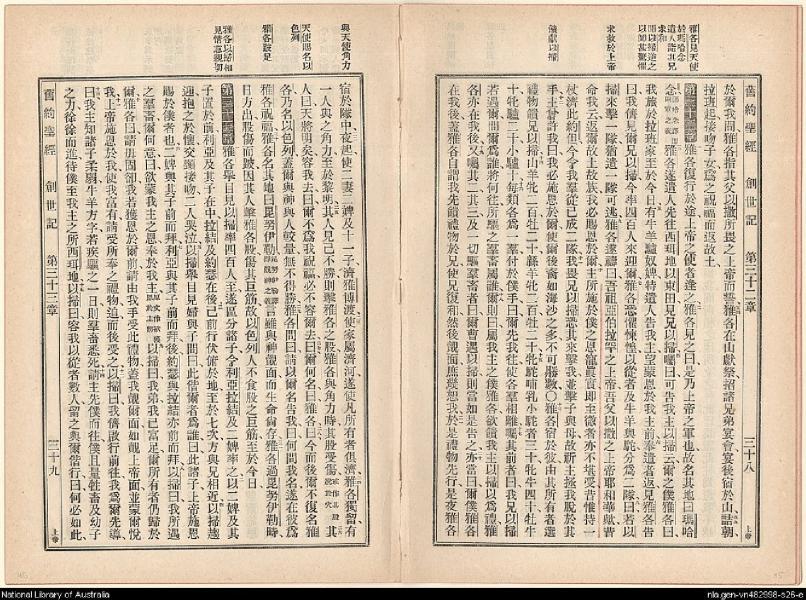 舊約聖經 創世記 第三十二章 三十八 上帝
雅各見天使於瑪哈念
遣人詣其兄求和
聞以掃迓之以四百人甚驚懼
求救於上帝
餽獻以掃
於爾我間雅各指其父以撒所畏之上帝而誓雅各在山獻祭招諸兄弟宴會宴後宿於山詰朝
拉班起接吻子女爲之祝福而返故土
第三十二章 雅各復行於途上帝之使者逢之雅各見之曰是乃上帝之軍也故名其地曰瑪哈
念 雅各遂遣人先往西珥地以東田見兄以掃囑曰可告我主以掃云爾之僕雅各曰
我旅於拉班家至於今日有牛羊驢奴婢特遣人告我主望蒙恩於我主前奉遣者返見雅各告
曰我儕見爾兄以掃今率四百人來迎爾雅各恐懼悚惶以從者及牛羊與駝分爲二隊曰若以
掃來擊一隊猶遺一隊可逃雅各遂禱曰吾祖亞伯拉罕之上帝吾父以撒之上帝耶和華歟昔
命我云返爾故土故族我必賜恩於爾主所施於僕之恩寵眞實即至微者亦不堪受昔惟持一
杖濟此約但今我羣從已成二隊我畏兄以掃恐其來擊我並擊子與母故祈主拯我脫於其
手主嘗許我曰我必施恩於爾使爾後裔如海沙之多不可勝數〇雅各宿於彼由其所有者選
禮物餽兄以掃山羊牝二百牡二十緜羊牝二百牡二十牝駝哺乳小駝者三十牝牛四十牡牛
十牝驢二十小驢十每類各爲一羣付於僕手曰爾先我往使各羣相離囑其前者曰我兄以掃
若遇爾問爾誰將何往所驅之羣畜屬誰爾則曰屬我主之僕雅各欲餽我主以掃以爲禮雅
各亦在我後又囑其二其三及一切驅羣畜者曰爾曹遇以掃則當如是告之亦當曰爾僕雅各
在我後蓋雅各自謂我先餽禮物於兄使兄復和然後覿面庶幾恕我於是禮物先行是夜雅各
與天使角力
天使賜名以色列
雅各跛足
雅各以掃相見情意親切
宿於隊中夜起使二妻二婢及十一子濟雅博渡使家屬濟河遂使凡所有者俱濟雅各獨留有
一人與之角力至於黎明其人見己不勝則擊雅各之股雅各與角力時其股受傷 其
人曰天將明矣容我去曰爾不爲我祝福必不容爾去曰爾何名曰雅各曰今而後爾不復名雅
各乃名以色列蓋爾與神與人較量無不得勝雅各問曰請以爾名告我曰何問我名遂在彼爲
雅各祝福雅各名其地曰毘努伊勒 言雖與神覿面而生命尙存雅各過毘努伊勒時
日方出股傷而跛因其人擊雅各股傷其巨筋故以色列人不食股之巨筋至於今日
第三十三章 雅各舉目見以掃率四百人至遂區分諸子令利亞拉結及二婢率之以二婢及其
子置於前利亞及其子在中拉結及約瑟在後己前行伏俯於地至於七次方與兄相近以掃趨
迎抱之於懷交頸接吻二人哭泣以掃舉目見婦與子問曰此偕爾者爲誰曰此諸子上帝施恩
賜於僕者也二婢與其子前而拜利亞與其子前而拜後約瑟與拉結亦前而拜以掃曰我所遇
之羣畜爾何意曰欲蒙我主之恩奉於我主 以掃曰我弟我已富足爾所有者仍歸於
爾雅各曰請毋固卻我若獲恩於爾前請由我手受此禮物蓋我覿爾面如覿上帝面並蒙爾悅
我上帝施恩於我使我富有請受所奉之禮物迫而後受之以掃曰我儕啟行前往我爲爾先導
曰我主知諸子柔弱牛羊方字若疾驅之一日則羣畜悉死請主先僕而往僕且量牲畜及幼子
之力徐徐而進待僕至我主之所西珥地以掃曰容我以從者數人留之與爾偕行曰何必如此
舊約聖經 創世記 第三十三章 三十九 上帝
National Library of Australia
nla.gen-vn482998-s26-e